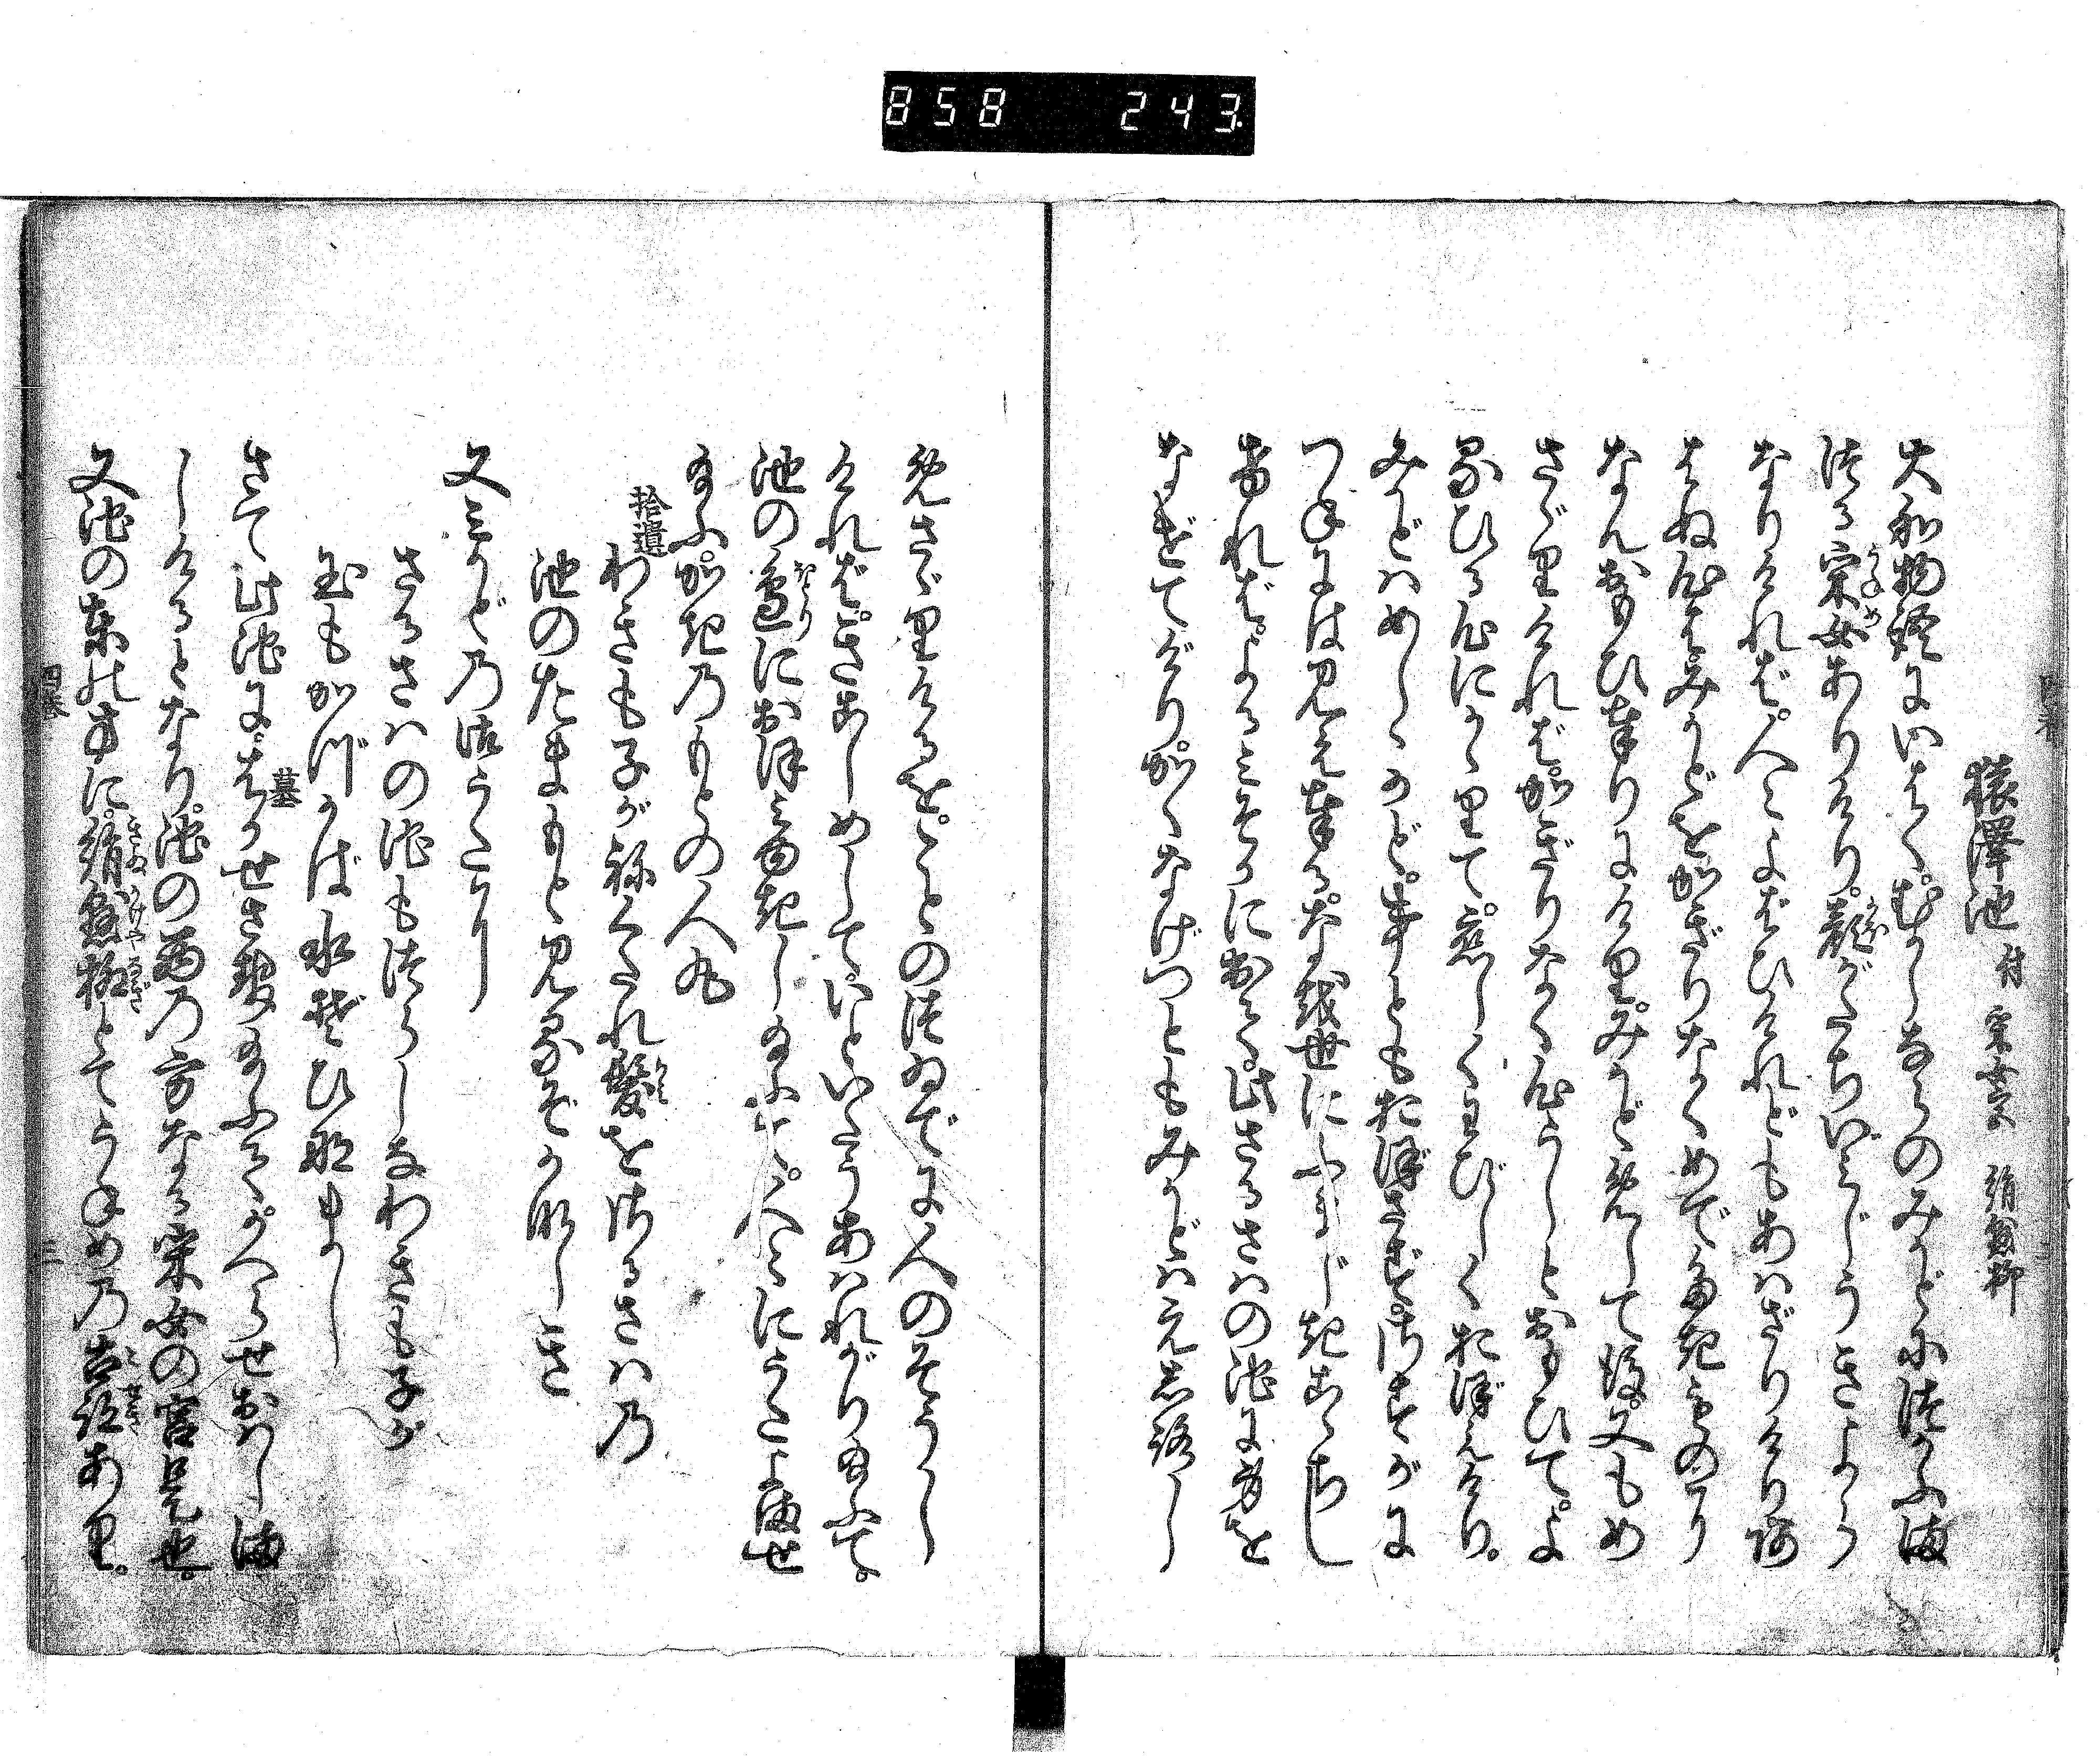 858 243
猿澤池 付 采女宮 絹懸柳
大和物語にいはく。むかしならのみかどに侍つかふま
つる采女ありけり。顔かたちいみじうきよら
なりければ。人々よばひけれどもあはざりけり。あ
はぬ心は。みかどをかぎりなくめでたき物になん
なんおもひ奉りにける。みかど めして後。又もめ
さゞりければ。かぎりなく心うしとおもひて。よ
るひる心にかゝりて。恋しくわびしくおぼえけり。
みかどはめしゝかど。事ともおぼさず。さすがに
つねには見え奉る。なを世にふまじきこゝちし
ければ。よるみそかに出て。此さるさはの池に身を
なげてけり。かくなげつともみかどはえしろし
めさゞりけるを。ことのつゐでに人のそうし
ければ。きこしめして。いといたうあはれがり給ふて。
池の邊におほみゆきし給ふて。人々にうたよませ
給ふ。かきのもとの人丸
拾遺 わきも子がねくたれ髪をさるさはの
池のたまもと見るぞかなしき
又みかどの御うたに
さるさはの池もつらしなわきも子が
玉もかづかば水ぞひなまし
さて此池に。はかせさせ給ふて。かへらせおはしま
墓
しけるとなり。池の西の方なる采女の宮是也。
又池の東の方に。絹懸柳とてうねめの古跡あり。
四巻 三